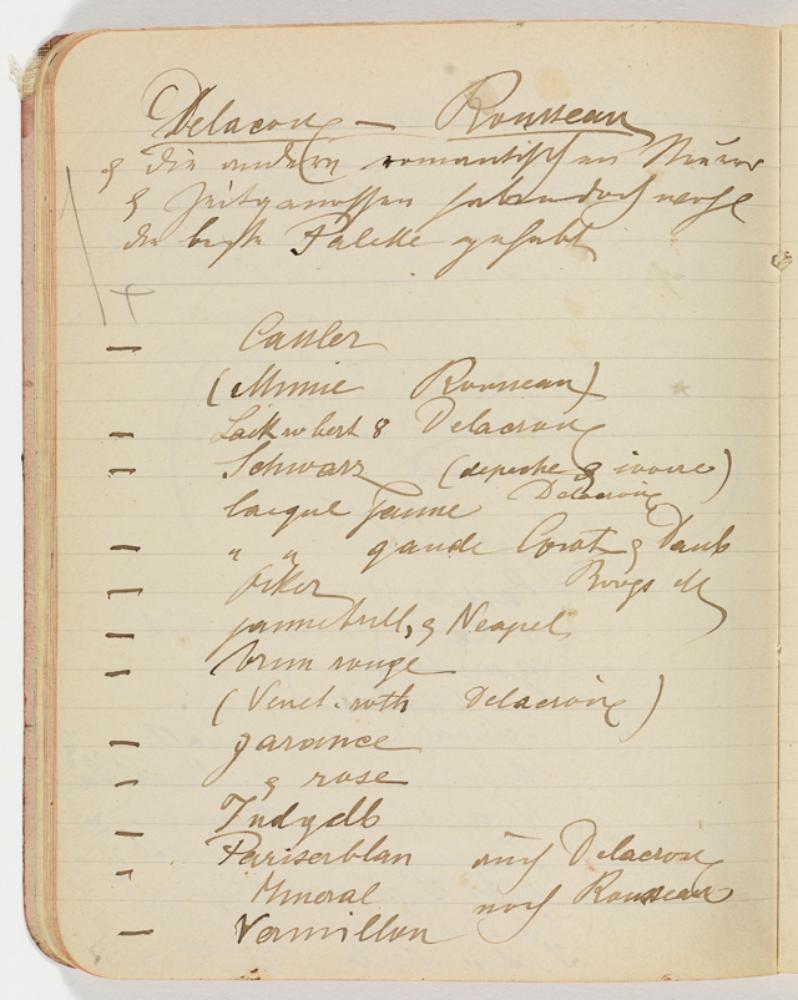 Delacroix — Rousseau
& die andern romantischen
& Zeitgenossen haben doch wohl
die beste Palette gehabt
— Cassler
(Mumie Rousseau)
— Lack robert 8 Delacroix
— Schwarz (depeche & ivoire)
laque jaune Delacroix
— " " gaude Corot & Daub
— Oker
— jaune brill, & Neapel
— brun rouge
(Venet. roth Delacroix)
— garance
— & rose
— Indigo
— Pariserblau auch Delacroix
Mineral noch Rousseau
— Vermillon